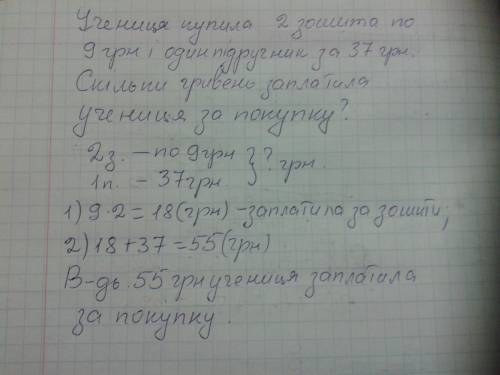 Учениця купила 2 зошита по
9 грн і один підручник за 37 грн.
Скільки гривень заплатила
учениця за покупку?
2з. – по 9грн } ? грн.
1п. – 37грн.
1) 9·2=18(грн) –заплатила за зошити;
2) 18+37=55(грн)
В-дь. 55 грн учениця заплатила
за покупку.